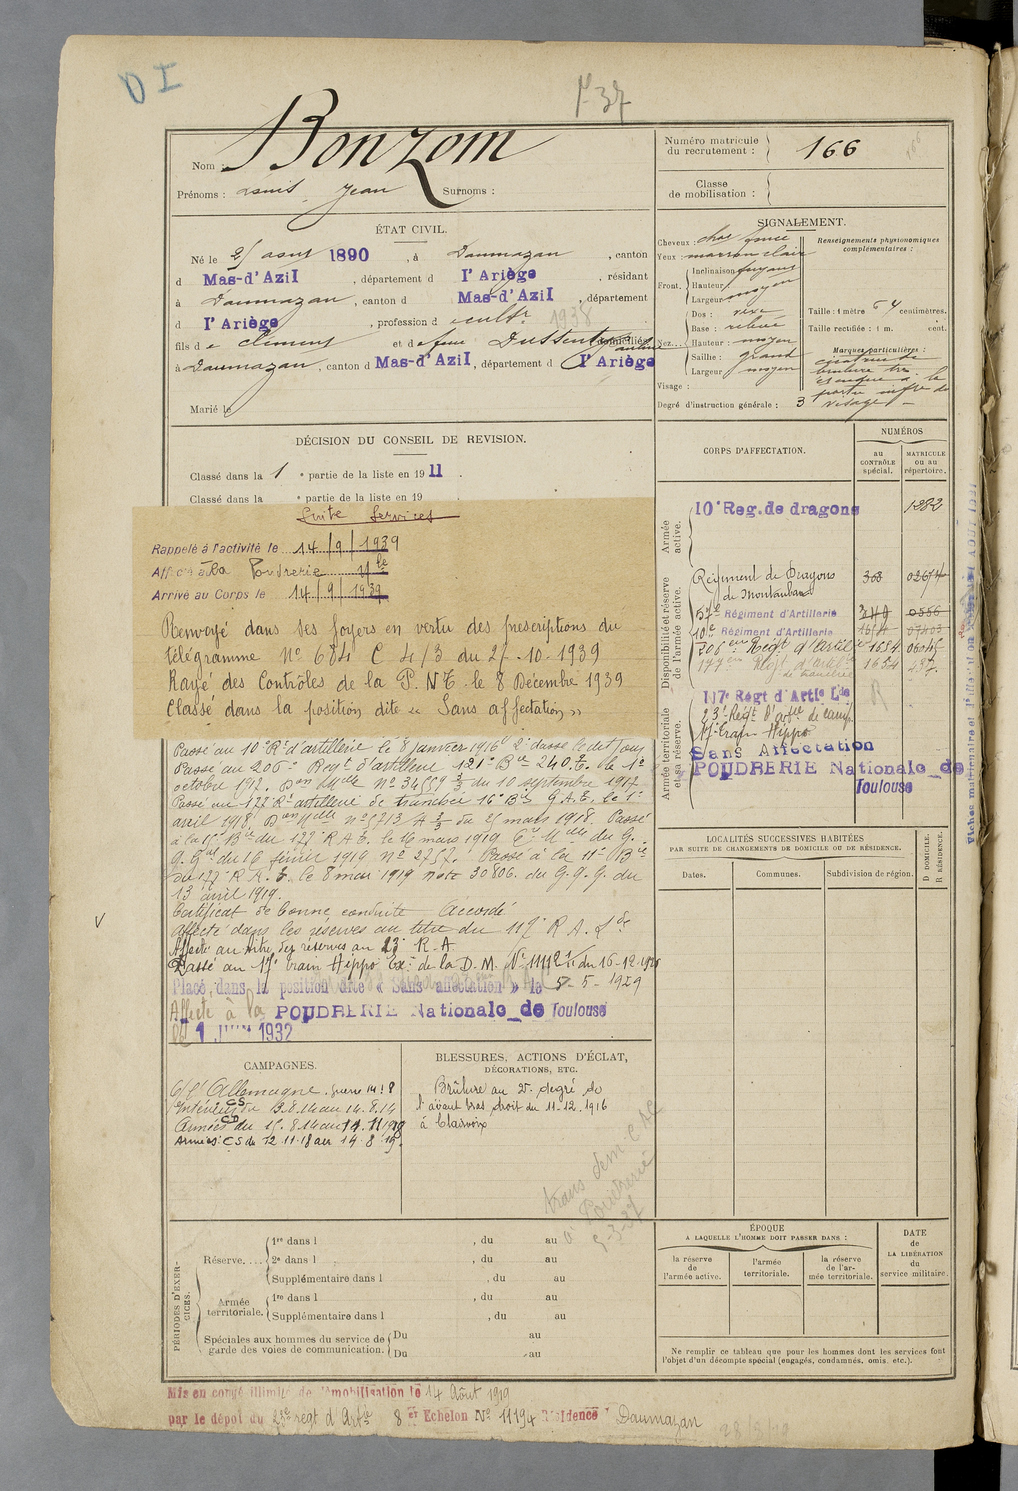 D I
P 37
Nom : Bonzom
Prénoms : Louis Jean Surnoms :
Numéro matricule du recrutement : 166
Classe de mobilisation :
ÉTAT CIVIL.
Né le 25 aout 1890, à Daumazan, canton
d Mas-d'Azil, département d l'Ariège, résidant
à Daumazan, canton d Mas-d'Azil, département
d l'Ariège, profession d cultr 1938
fils de Clément et de domiciliés
à Daumazan, canton d Mas-d'Azil, département d l'Ariège
Marié le
SIGNALEMENT.
Cheveux : chat foncé
Yeux : marron clair
Front. Inclinaison fuyant
Hauteur
Largeur moyen
Nez... Dos : vexe
Base : relevé
Hauteur : moyen
Saillie : grand
Largeur moyen
Visage :
Degré d'instruction générale : 3
Renseignements physionomiques complémentaires :
Taille : 1 mètre 64 centimètres.
Taille rectifiée : 1 m. cent.
Marques particulières :
cicatrice de
brulure
partie infre de
visage
DÉCISION DU CONSEIL DE REVISION.
Classé dans la 1 e partie de la liste en 1911.
Classé dans la e partie de la liste en 19
Suite Services
Rappelé à l'activité le 14/9/1939
Affecté à la Poudrerie Nle
Arrivé au Corps le 14/9/1939
Renvoyé dans ses foyers en vertu des prescriptions du
télégramme No 684 C 4/3 du 25-10-1939
Rayé des Contrôles de la P.N.T. le 8 Décembre 1939
Classé dans la position dite « Sans affectation »
Passé au 10e Rt d'artillerie le 8 janvier 1916 2e classe le dit jour
Passé au 206e Regt d'artillerie 121e Bie 240.T. le 1e
octobre 1917. Don Mlle No 34559 3/3 du 10 septembre 1917
Passé au 177 Rt artillerie de tranchée 16e Bie G.A.E. le 1e
avril 1918. Don Mlle No 5713 A 3/3 du 25 mars 1918. Passé
à la Bie du 177 R.A.E. le 16 mars 1919 Mlle du G.
Q. Gal du 16 février 1919 No 2757. Passé à la 11e Bie
du 177 R.A.E. le 8 mai 1919 note 30806. du G.Q.G. du
13 avril 1919.
Certificat de bonne conduite Accordé
Affecté dans les réserves au titre du 117e R A Lde
Affecté au titre des réserves au 23e R.A
Passé au 17e train Hippo Ex. de la D.M. No 11112 du 16-12-1926
Placé dans la position dite « Sans affectation » le 5-5-1929
Affecté à la POUDRERIE Nationale de Toulouse
le 1 JUIN 1932
CORPS D'AFFECTATION.
NUMÉROS
au CONTRÔLE spécial.
MATRICULE ou au répertoire.
Armée active.
10e Reg. de dragons 1282
Disponibilité et réserve de l'armée active.
Régiment de Dragons
de Montauban 303
57e Régiment d'Artillerie 0556
10e Régiment d'Artillerie 07403
206eme Régt d'artillie 1654 06045
177eme Régt d'artil 1654 437
de tranchée
Armée territoriale et sa réserve.
117e Régt d'Artie Lde R
23e Régt d'artie de camp.
17e Train Hippo
Sans Affectation
POUDRERIE Nationale de
Toulouse
LOCALITÉS SUCCESSIVES HABITÉES
PAR SUITE DE CHANGEMENTS DE DOMICILE OU DE RÉSIDENCE.
Dates. Communes. Subdivision de région.
D. DOMICILE. R. RÉSIDENCE.
CAMPAGNES.
C/ l'Allemagne. Guerre 14-18
Intérieur CS du 3.8.14 au 14.8.14
Armées CD du 15.8.14 au 11.11.1918
Armées : CS de 12.11.18 au 14.8.19.
BLESSURES, ACTIONS D'ÉCLAT,
DÉCORATIONS, ETC.
Brûlure au 2e degré de
l'avant bras droit du 11-12.1916
à Clasvoix
trans dem. C AC
à Poudrerie
5-3-37
PÉRIODES D'EXERCICES.
Réserve.... 1re dans l , du au
2e dans l , du au
Supplémentaire dans l , du au
Armée territoriale. 1re dans l , du au
Supplémentaire dans l , du au
Spéciales aux hommes du service de garde des voies de communication. Du au
Du au
ÉPOQUE
A LAQUELLE L'HOMME DOIT PASSER DANS :
la réserve de l'armée active.
l'armée territoriale.
la réserve de l'armée territoriale.
DATE de LA LIBÉRATION du service militaire.
Ne remplir ce tableau que pour les hommes dont les services font
l'objet d'un décompte spécial (engagés, condamnés, omis, etc.).
Mis en congé illimité de démobilisation le 14 Août 1919
par le dépôt du 23e régt d'Artie 8 er Echelon No 11194 Résidence Daumazan
28/8/19